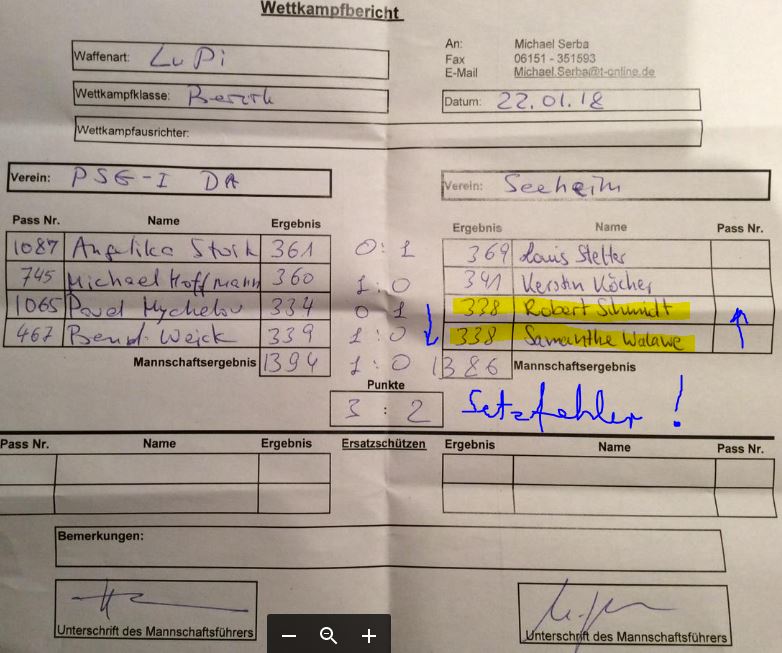 Wettkampfbericht
Waffenart: LuPi
Wettkampfklasse: Bezirk
Wettkampfausrichter:
An: Michael Serba
Fax 06151 - 351593
E-Mail Michael.Serba@t-online.de
Datum: 22.01.18
Verein: PSG-I DA
Verein: Seeheim
Pass Nr. Name Ergebnis Ergebnis Name Pass Nr.
1087 Angelika 361 0:1 369 Stetter
745 Michael Hoffmann 360 1:0 341 Kerstin Köcher
1065 Pavel 334 0 1 338 Robert Schmidt
467 Bernd Weick 339 1:0 338 Samantha Walawe
Mannschaftsergebnis 1394 1:0 1386 Mannschaftsergebnis
Punkte
3 : 2
Setzfehler !
Pass Nr. Name Ergebnis Ersatzschützen Ergebnis Name Pass Nr.
Bemerkungen:
Unterschrift des Mannschaftsführers
Unterschrift des Mannschaftsführers